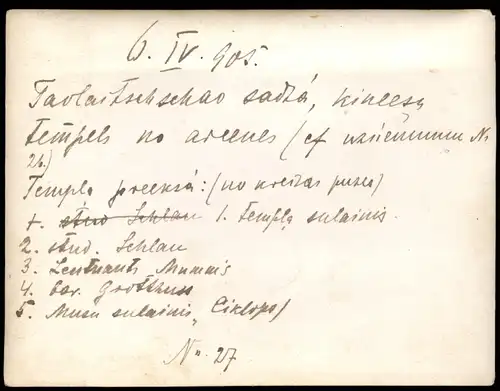 6. IV. 905.
Taolaitschschao sādžā, kineešu
tempels no ārienes (cf uzņēmumu No
26.)
Tempļa preekšā: (no kreisās puses)
1. stud Schlau 1. tempļa sulainis.
2. stud. Schlau
3. Leutnants Mummis
4. bar. Grotthuss
5. Musu sulainis „Ciklops”
No. 27